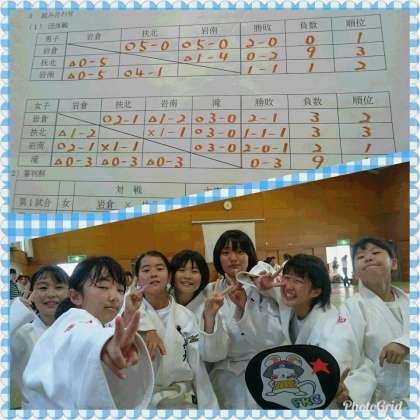 3 組み合わせ
(1) 団体戦
男子 岩倉 扶北 岩南 勝敗 負数 順位
岩倉 ○5-0 ○5-0 2-0 0 1
扶北 △0-5 △1-4 0-2 9 3
岩南 △0-5 ○4-1 1-1 1 2
女子 岩倉 扶北 岩南 滝 勝敗 負数 順位
岩倉 ○2-1 △1-2 ○3-0 2-1 3 2
扶北 △1-2 ×1-1 ○3-0 1-1-1 3 3
岩南 ○2-1 ×1-1 ○3-0 2-0-1 2 1
滝 △0-3 △0-3 △0-3 0-3 9
2) 審判割
対戦
第1試合 女 岩倉 ×
PhotoGrid